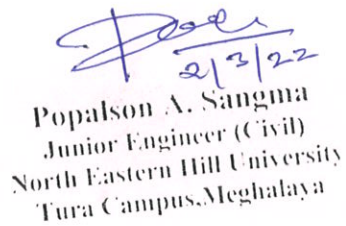 2/3/22
Popalson A. Sangma
Junior Engineer (Civil)
North Eastern Hill University
Tura Campus,Meghalaya